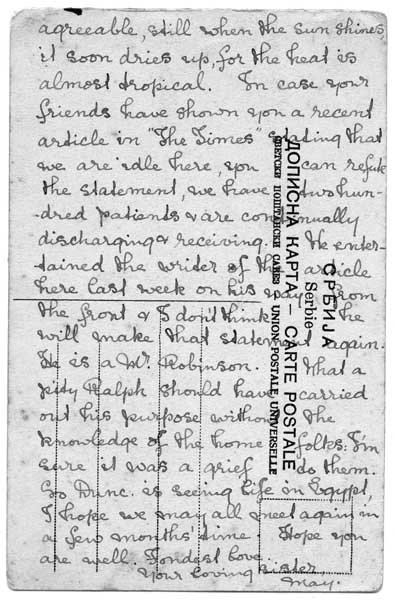 agreeable, still when the sun shines,
it soon dries up, for the heat is
almost tropical. In case your
friends have shown you a recent
article in "The Times" stating that
we are idle here, you can refute
the statement, we have two hun-
-dred patients & are continually
discharging & receiving. We enter-
tained the writer of the article
here last week on his way from
the front & I don't think he
will make that statement again.
He is a Mr. Robinson. What a
pity Ralph should have carried
out his purpose without the
knowledge of the home folks: I'm
sure it was a grief to them.
So Dunc. is seeing life in Egypt,
I hope we may all meet again in
a few months' time. Hope you
are well. Fondest love.
Your loving sister,
May.
СРБИЈА
Serbie
ДОПИСНА КАРТА – CARTE POSTALE
СВЕТСКИ ПОШТАНСКИ САВЕЗ – UNION POSTALE UNIVERSELLE